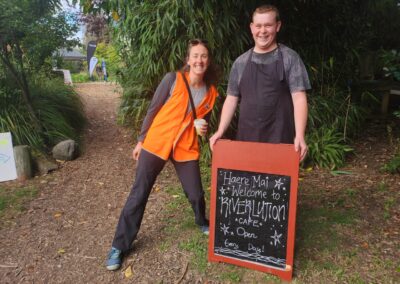 Haere Mai
Welcome to
RIVERLUTION
CAFE
Open
Every Day!